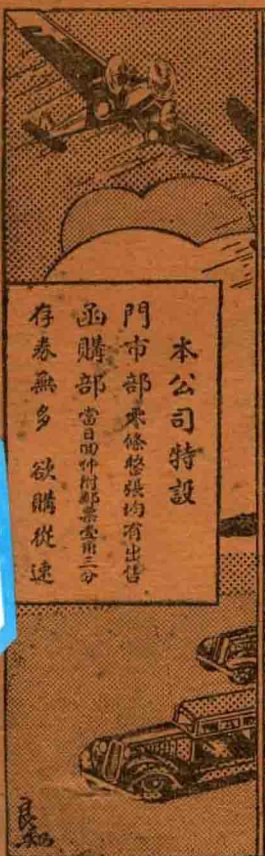 本公司特設
門市部 零條整張均有出售
函購部 當日回件附郵票壹角三分
存券無多 欲購從速
良知